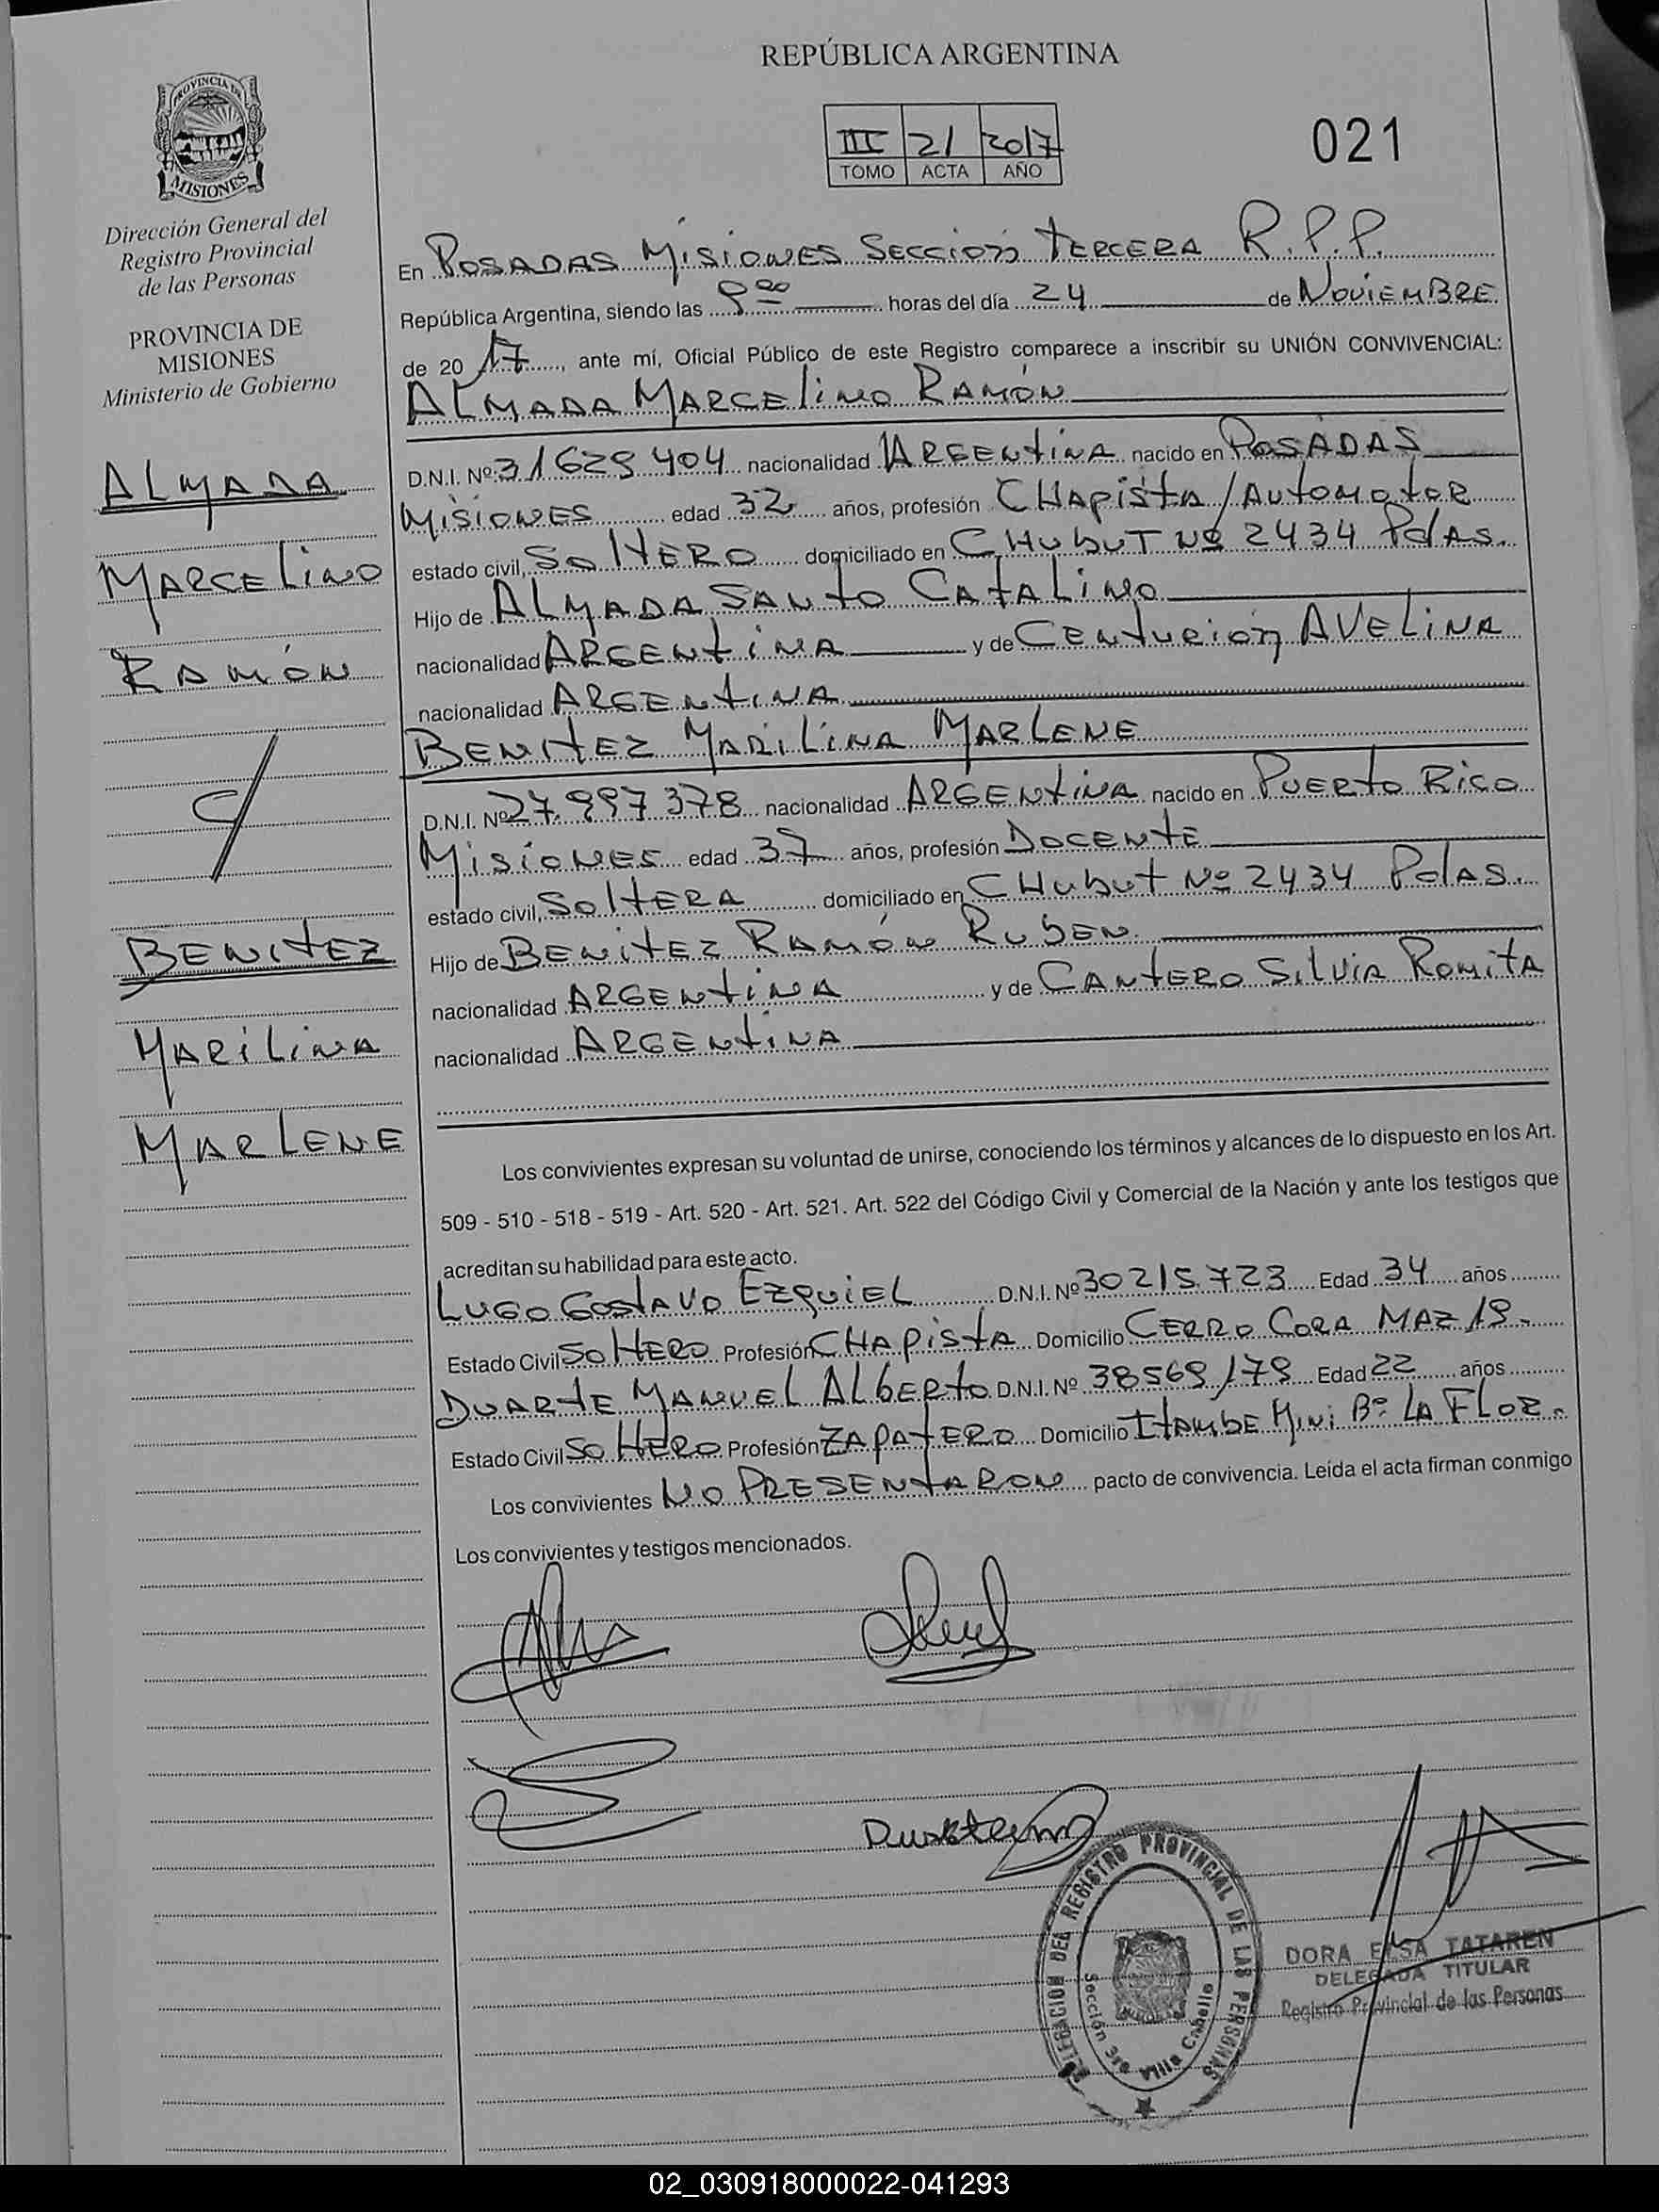 REPÚBLICA ARGENTINA
III 21 2017
TOMO ACTA AÑO
021
PROVINCIA DE
MISIONES
Dirección General del
Registro Provincial
de las Personas
PROVINCIA DE
MISIONES
Ministerio de Gobierno
ALMADA
MARCELINO
RAMÓN
C/
BENITEZ
MARILINA
MARLENE
En POSADAS MISIONES SECCIÓN TERCERA R.P.P.
República Argentina, siendo las horas del día 24 de NOVIEMBRE
de 2017, ante mí, Oficial Público de este Registro comparece a inscribir su UNIÓN CONVIVENCIAL:
ALMADA MARCELINO RAMÓN
D.N.I. Nº 31629404 nacionalidad ARGENTINA nacido en POSADAS
MISIONES edad 32 años, profesión CHAPISTA/AUTOMOTOR
estado civil, SOLTERO domiciliado en CHUBUT Nº 2434 PdAS.
Hijo de ALMADA SANTO CATALINO
nacionalidad ARGENTINA y de CENTURIÓN AVELINA
nacionalidad ARGENTINA
BENITEZ MARILINA MARLENE
D.N.I. Nº 27.997378 nacionalidad ARGENTINA nacido en PUERTO RICO
MISIONES edad 37 años, profesión DOCENTE
estado civil, SOLTERA domiciliado en CHUBUT Nº 2434 PdAS.
Hijo de BENITEZ RAMÓN RUBEN
nacionalidad ARGENTINA y de CANTERO SILVIA ROMITA
nacionalidad ARGENTINA
Los convivientes expresan su voluntad de unirse, conociendo los términos y alcances de lo dispuesto en los Art.
509 - 510 - 518 - 519 - Art. 520 - Art. 521. Art. 522 del Código Civil y Comercial de la Nación y ante los testigos que
acreditan su habilidad para este acto.
LUGO GUSTAVO EZQUIEL D.N.I. Nº 30215.723 Edad 34 años
Estado Civil SOLTERO Profesión CHAPISTA Domicilio CERRO CORA MAZ 19.
DUARTE MANUEL ALBERTO D.N.I. Nº 38569179 Edad 22 años
Estado Civil SOLTERO Profesión ZAPATERO Domicilio ITAMBE MINI Bº LA FLOR.
Los convivientes NO PRESENTARON pacto de convivencia. Leída el acta firman conmigo
Los convivientes y testigos mencionados.
DELEGACION DEL REGISTRO PROVINCIAL DE LAS PERSONAS
Sección 3ra Villa Cabello
DORA ELSA TATAREN
DELEGADA TITULAR
Registro Provincial de las Personas
02_030918000022-041293